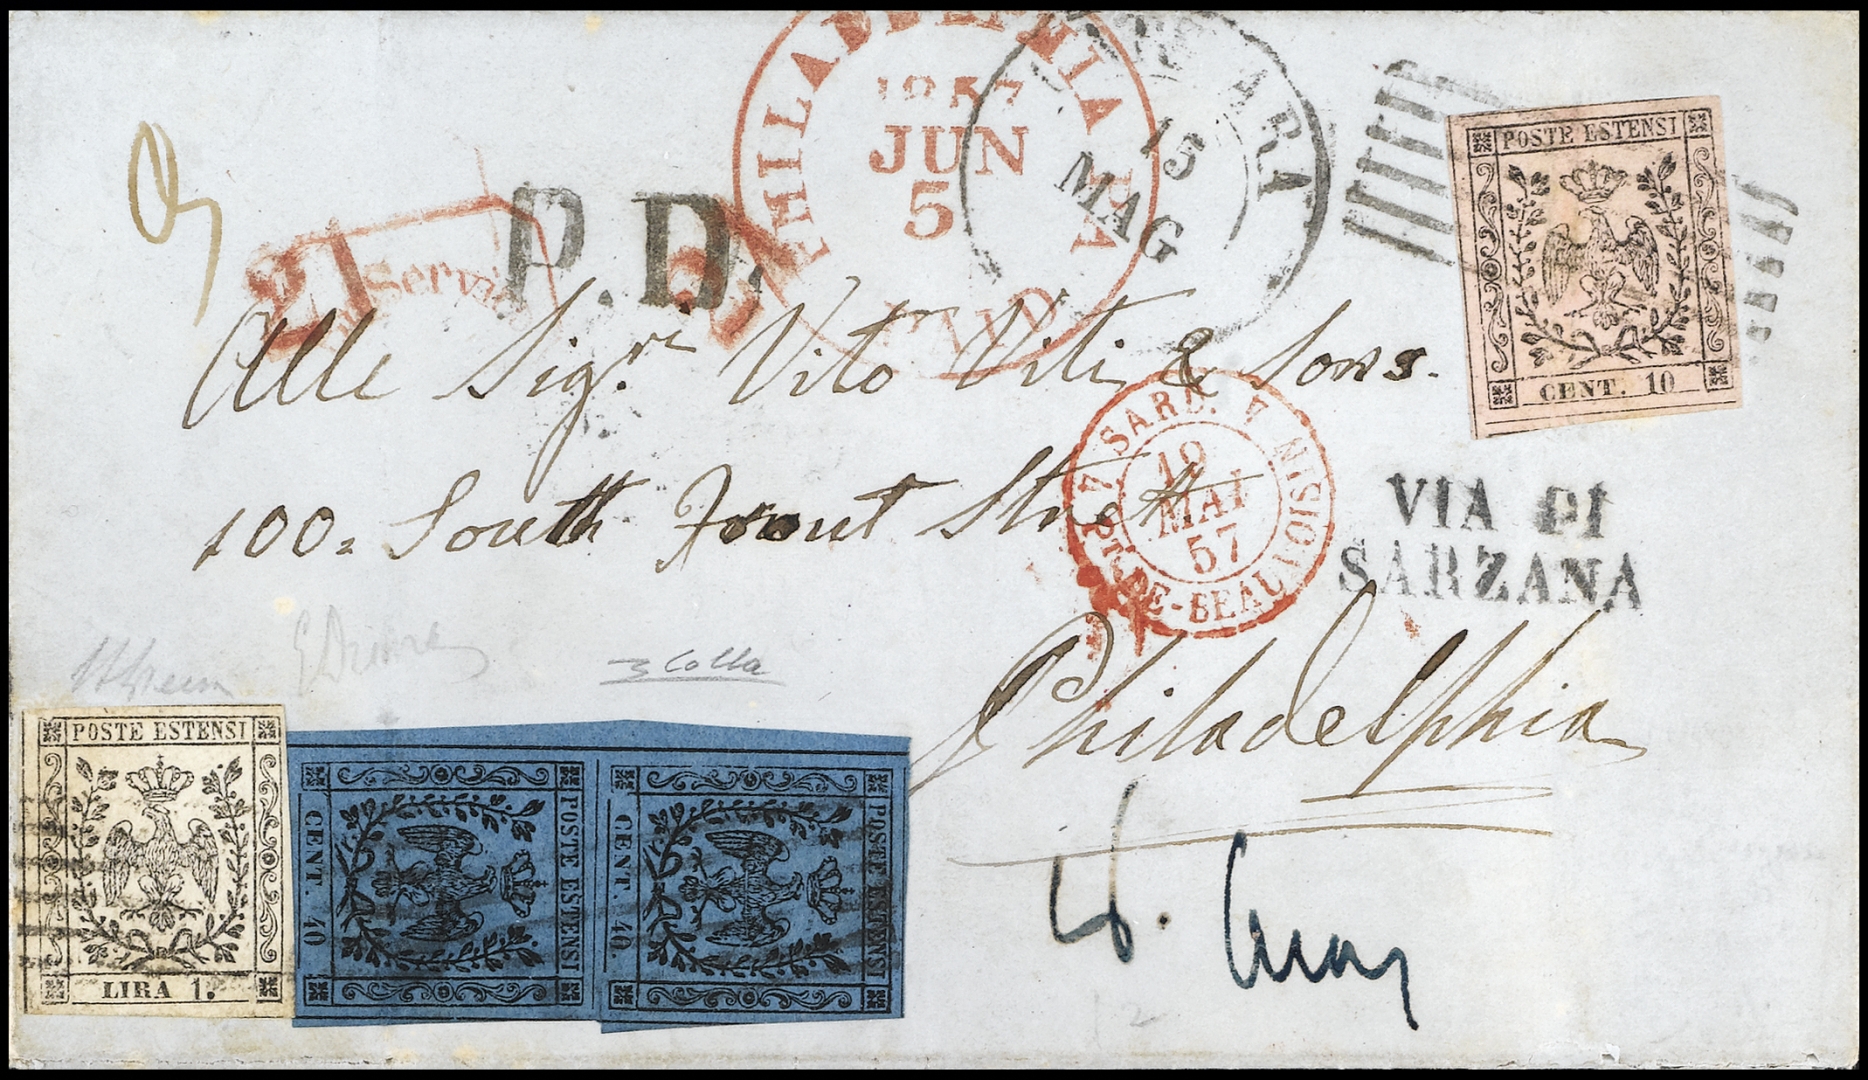 PHILADELPHIA PA
1857
JUN
5
PAID
15
MAG
21
Servic
P.D.
POSTE ESTENSI
CENT. 10
Alle Sigri Vito Viti & Sons.
100= South Front Street
Philadelphia
4 SARD. 4
19
MAI
57
PT-DE-BEAUVOISIN
VIA DI
SARZANA
Colla
POSTE ESTENSI
LIRA 1.
POSTE ESTENSI
CENT. 40
POSTE ESTENSI
CENT. 40.